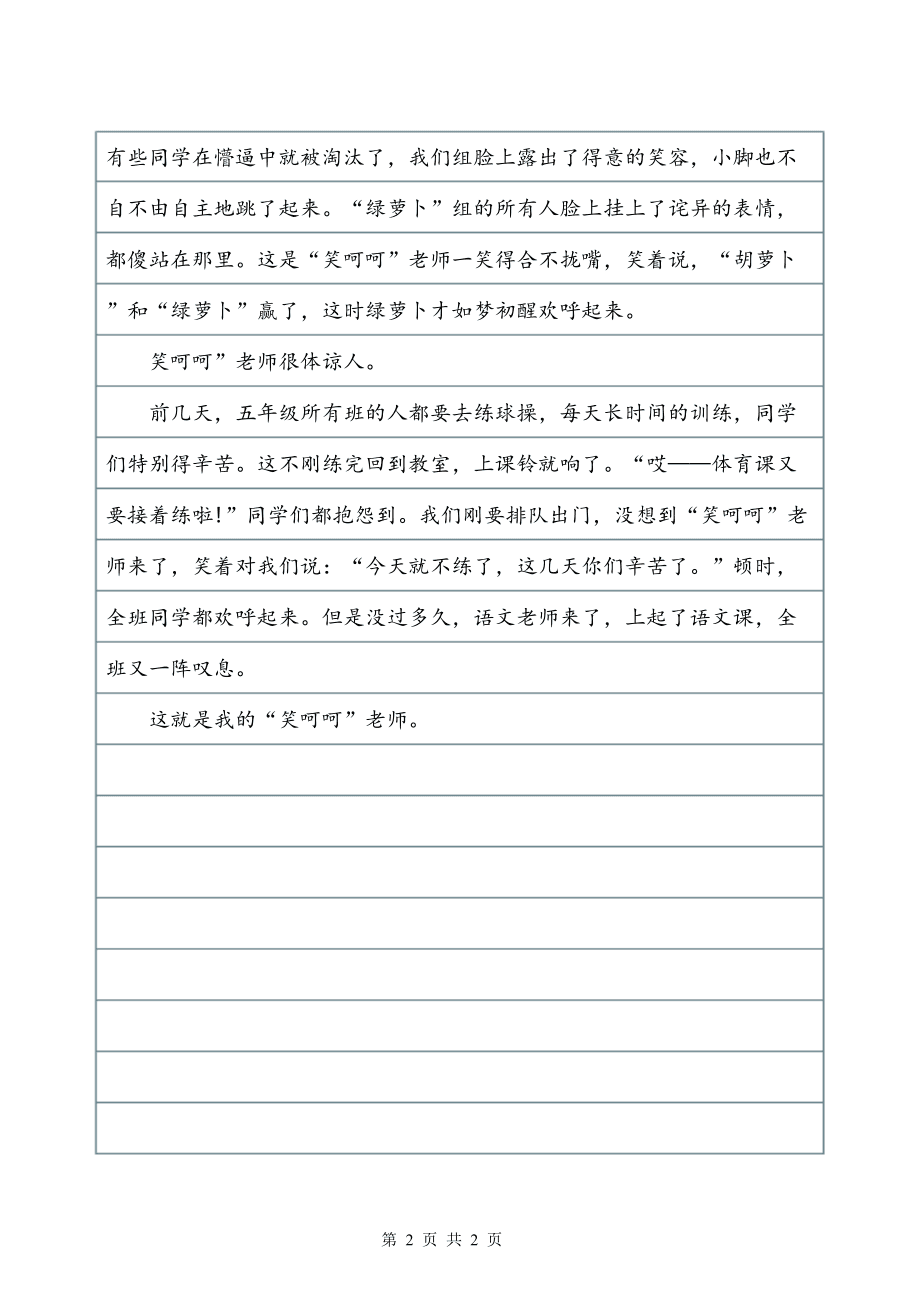 有些同学在懵逼中就被淘汰了，我们组脸上露出了得意的笑容，小脚也不
自不由自主地跳了起来。“绿萝卜”组的所有人脸上挂上了诧异的表情，
都傻站在那里。这是“笑呵呵”老师一笑得合不拢嘴，笑着说，“胡萝卜
”和“绿萝卜”赢了，这时绿萝卜才如梦初醒欢呼起来。
笑呵呵”老师很体谅人。
前几天，五年级所有班的人都要去练球操，每天长时间的训练，同学
们特别得辛苦。这不刚练完回到教室，上课铃就响了。“哎——体育课又
要接着练啦!”同学们都抱怨到。我们刚要排队出门，没想到“笑呵呵”老
师来了，笑着对我们说：“今天就不练了，这几天你们辛苦了。”顿时，
全班同学都欢呼起来。但是没过多久，语文老师来了，上起了语文课，全
班又一阵叹息。
这就是我的“笑呵呵”老师。
第 2 页 共 2 页